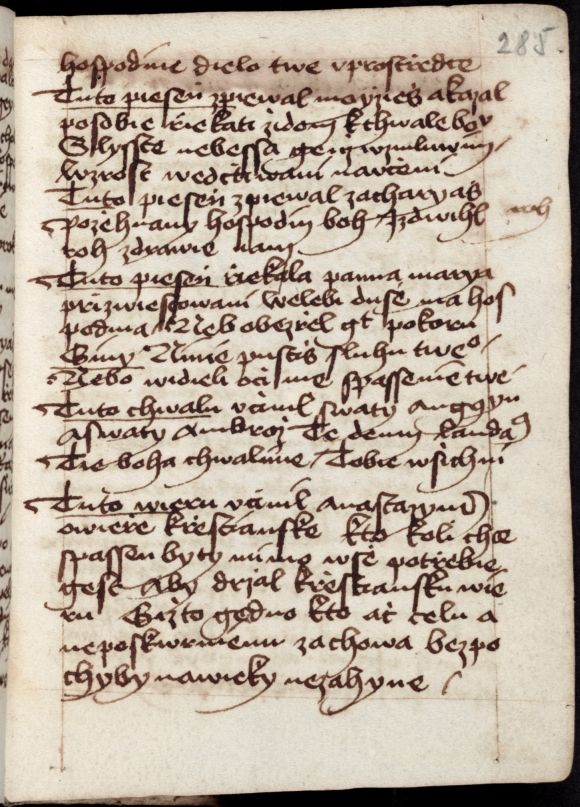 285
hospodine dielo twe vprostředce
Tuto pieseň zpiewal moyzieš a kazal
po sobie řiekati židom k chwale boží
Slysste nebessa genz mluwim
Wzrost wedctwani naučeni
Tuto piesen zpiewal zacharyaš
Požehnany hospodin boh Jzdwihl
roh zdrawie nam
roh
Tuto piesen řiekala panna marya
při zwiestowani Welebi duse ma hos
podina Neb obezřel gt pokoru
Giny Ninie pustiš sluhu tweo
Nebo widieli oči me spassenie twe
Tuto chwalu včinil swaty Augustyn
a swaty Ambrož Te deum laudamus
Tie boha chwalime Tobie wsichni
Tuto wieru včinil Anastazyus
o wieře křestianske kto koli chce
spassen byti mimo wse potřebie
gest Aby držal křestiansku wie
ru Gižto gedno kto ač celu a
neposkwrnienu zachowa bezpo
chyby nawieky nezahyne